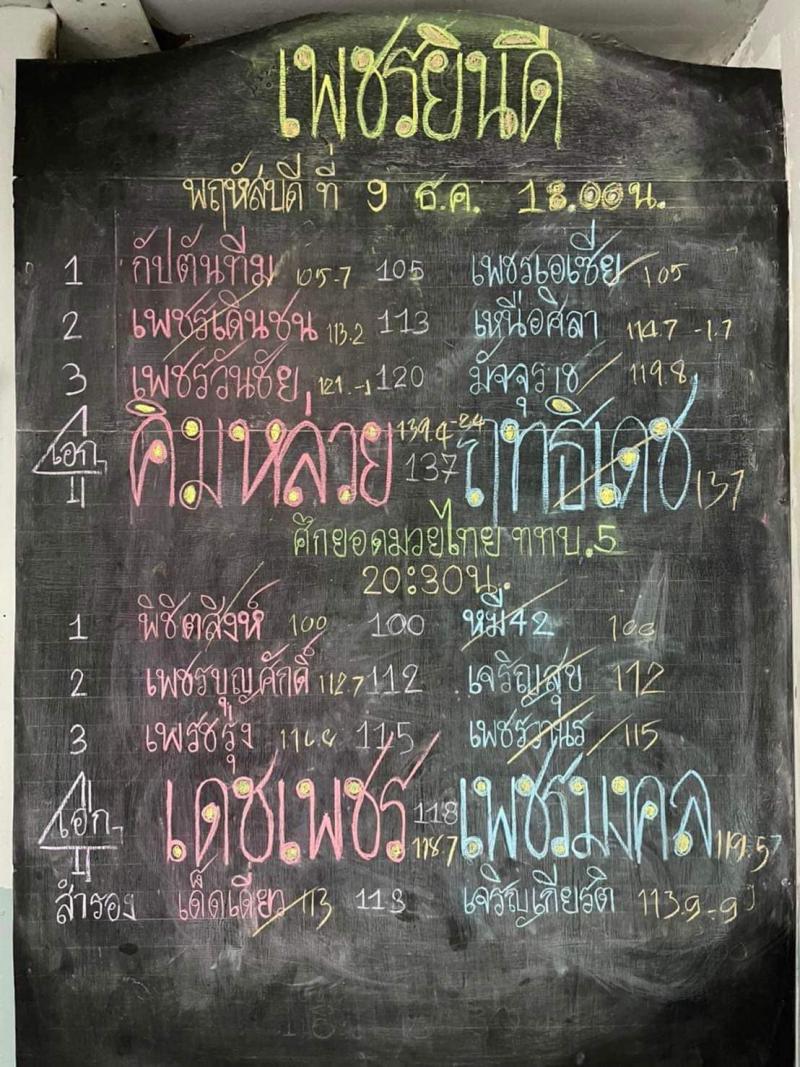 เพชรยินดี
พฤหัสบดี ที่ 9 ธ.ค. 18.00น.
1 กัปตันทีม 105-7 105 เพชรเอเซีย 105
2 เพชรเดินชน 113.2 113 เหนือศิลา 114.7 -1.7
3 เพชรวันชัย 121.-1 120 มัจจุราช 119.8
เอก คิมหล่วย 139.4 -2.4 137 ฤทธิเดช 137
ศึกยอดมวยไทย ททบ.5
20:30น.
1 พิชิตสิงห์ 100 100 หมี่42 100
2 เพชรบุญศักดิ์ 112.7 112 เจริญสุข 112
3 เพรชรุ่ง 115 เพชรวานร 115
เอก เดชเพชร 118.7 118 เพชรมงคล 119.5
สำรอง เด็ดเดี่ยว 113 113 เจริญเกียรติ 113.9 -9